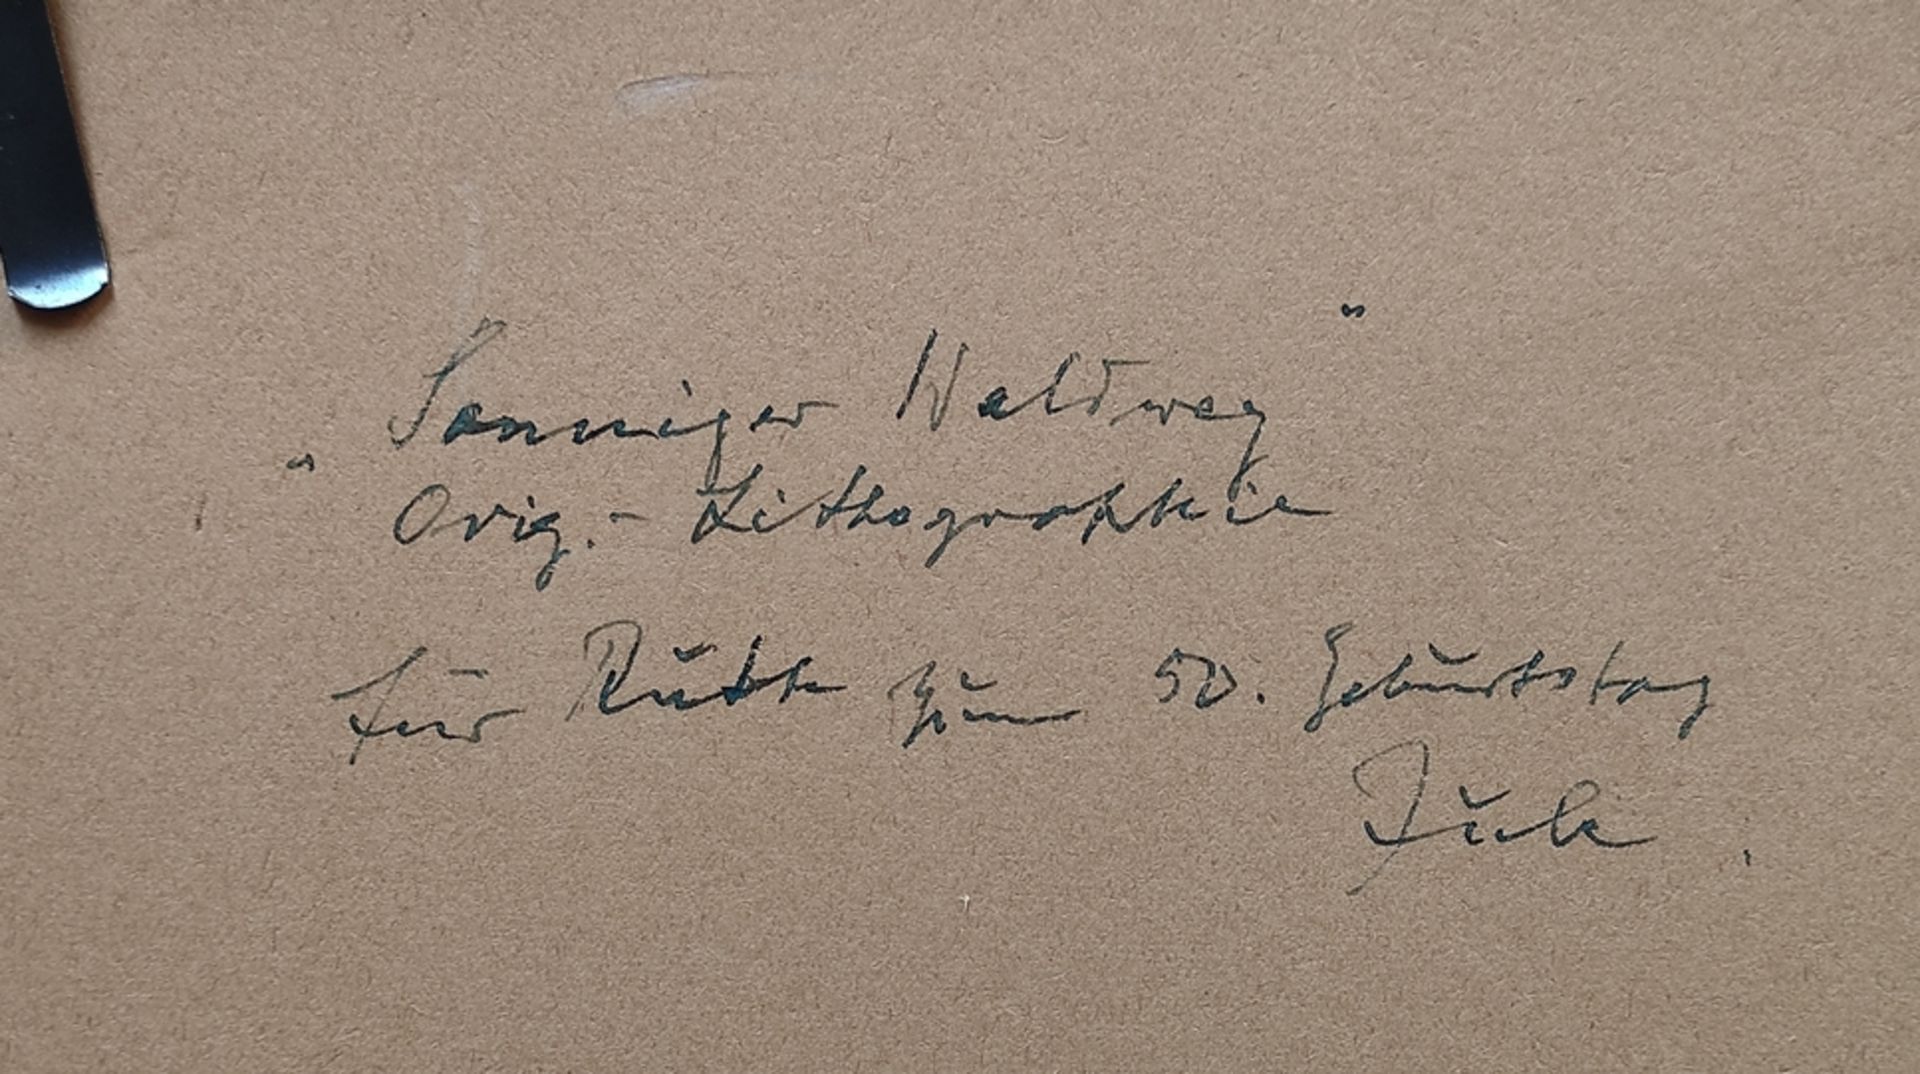 „Sonniger Waldweg"
Orig.-Lithographie
für Ruth zum 50. Geburtstag